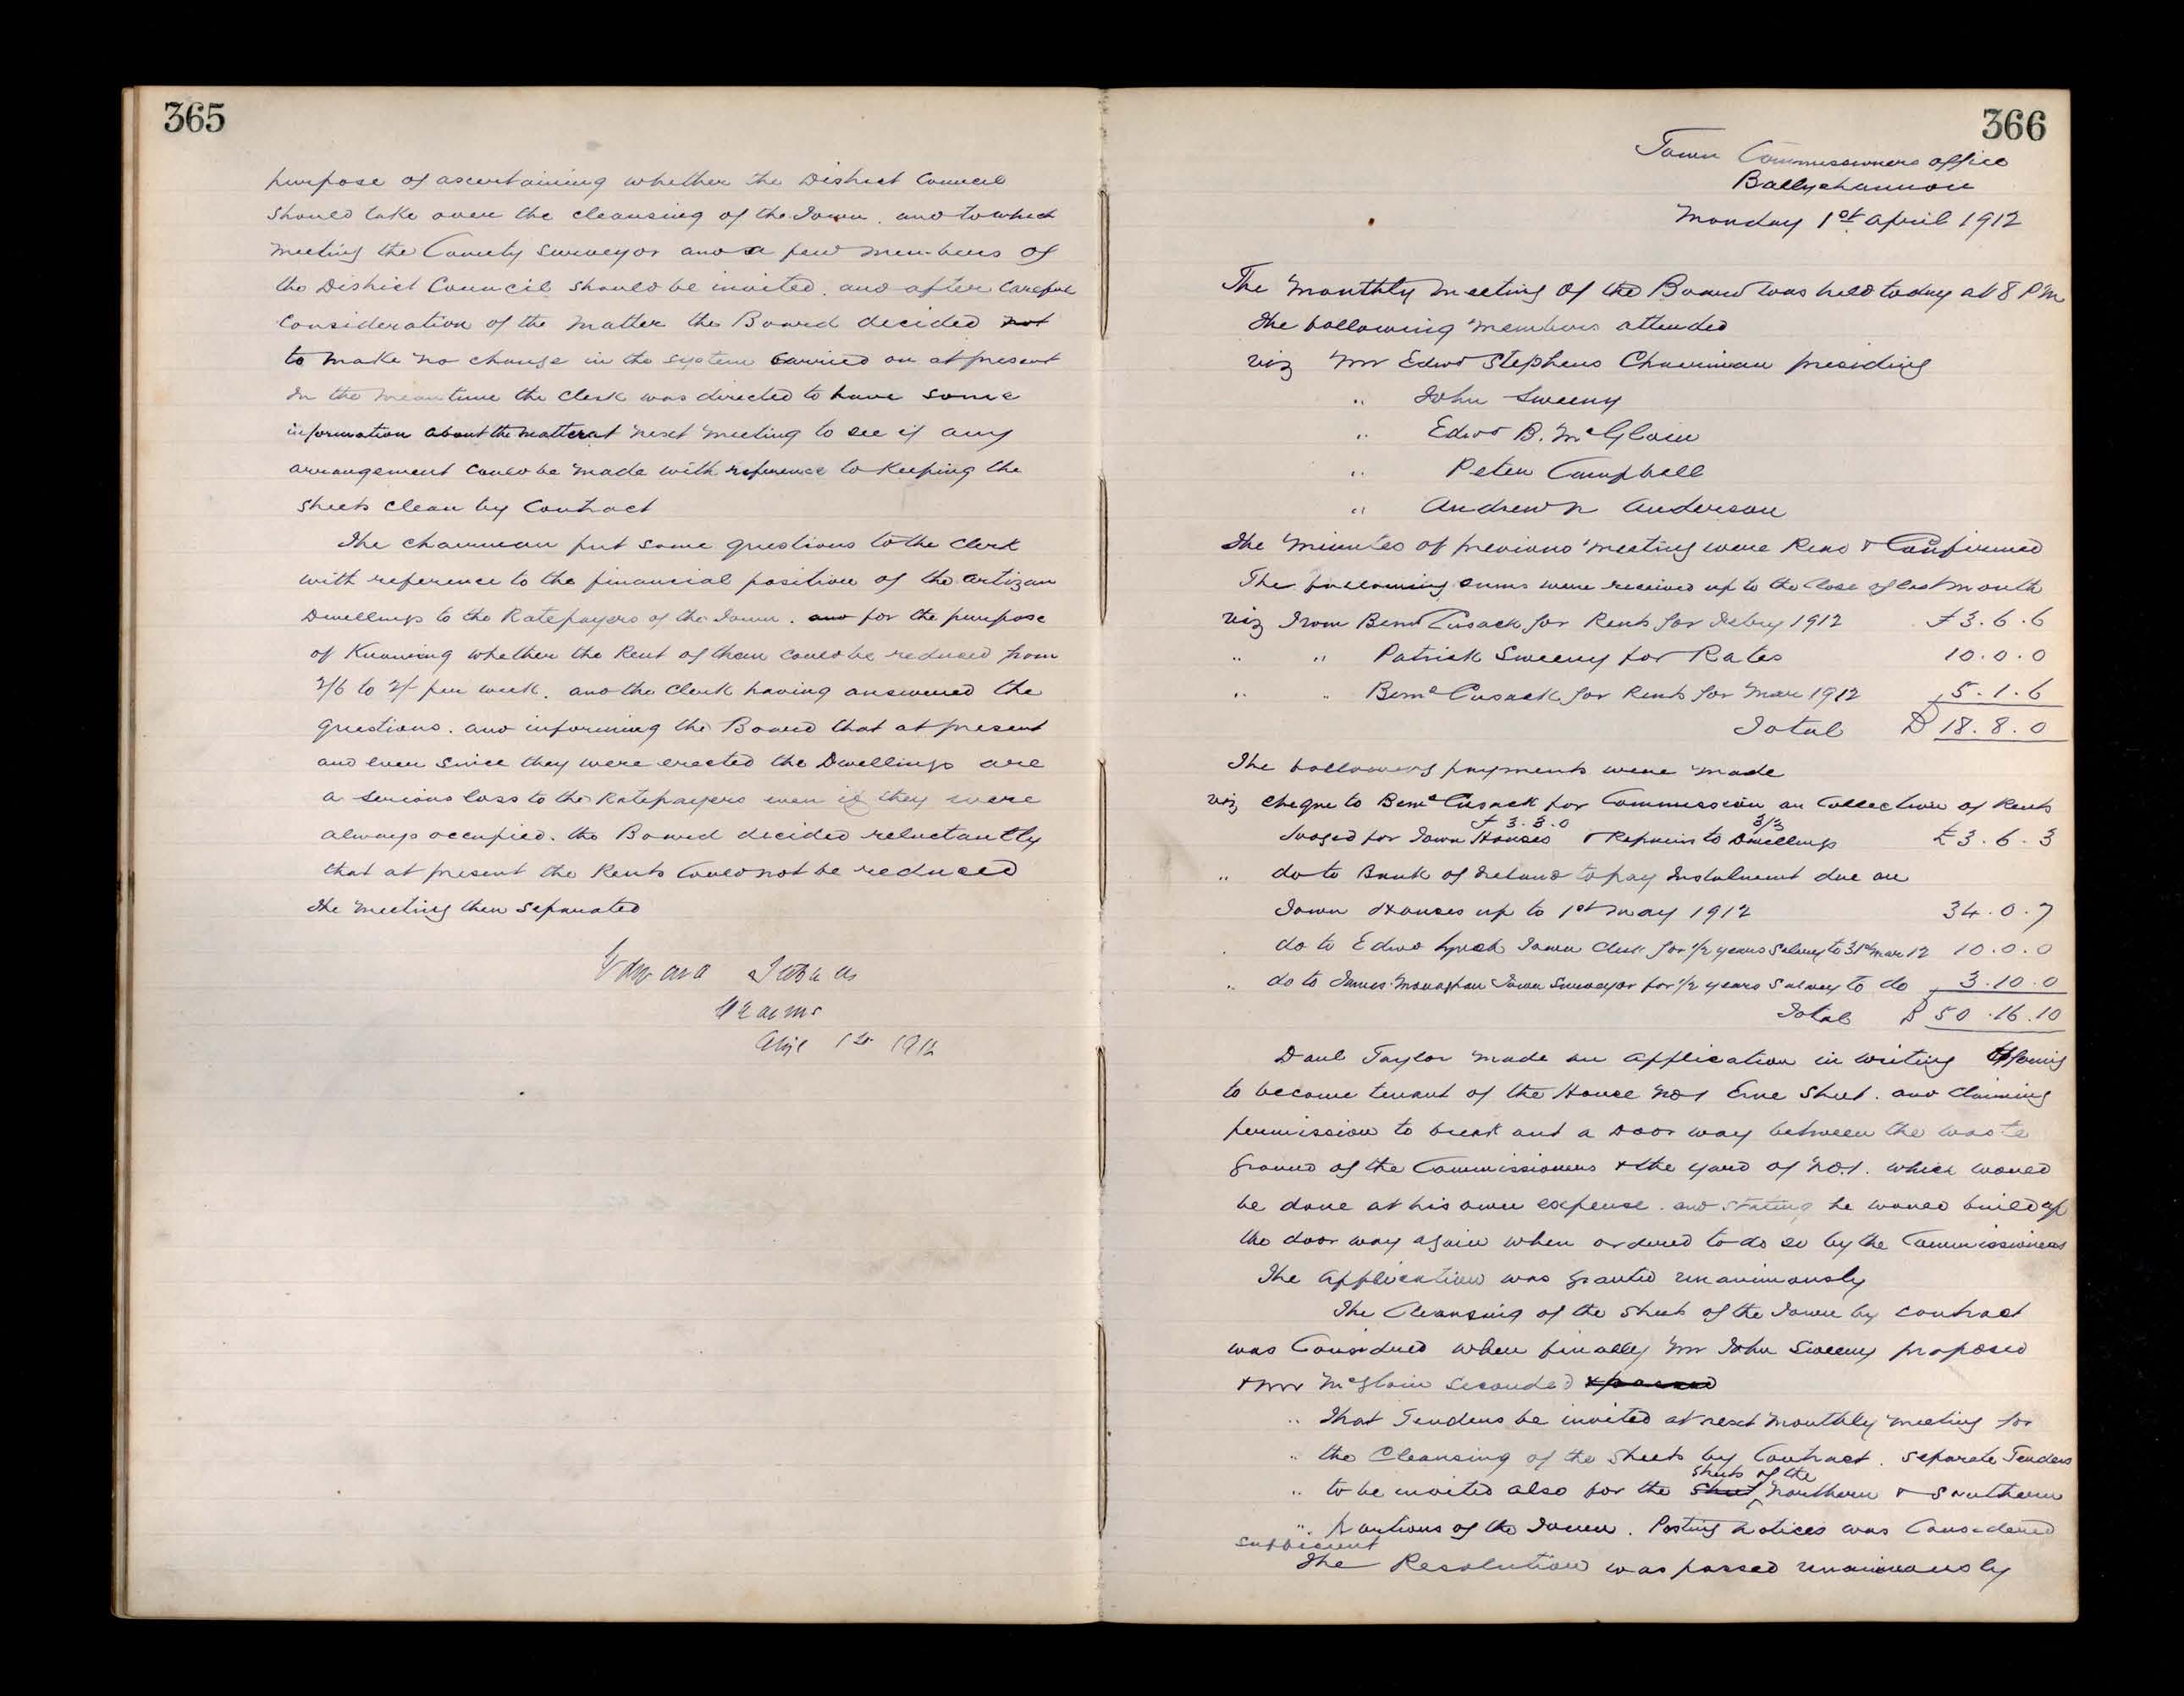 365
purpose of ascertaining whether the District Council
should take over the cleansing of the Town. and to which
meeting the County Surveyor and a few members of
the District Council should be invited. and after careful
consideration of the matter the Board decided not
to make no change in the system carried on at present
In the meantime the Clerk was directed to have some
information about the matter at next meeting to see if any
arrangement could be made with reference to keeping the
streets clean by Contract
The chairman put some questions to the Clerk
with reference to the financial position of the Artizan
Dwellings to the Ratepayers of the Town. and for the purpose
of Knowing whether the Rent of them could be reduced from
2/6 to 2/- per week. and the Clerk having answered the
questions. and informing the Board that at present
and ever since they were erected the Dwellings are
a serious loss to the Ratepayers even if they were
always occupied. the Board decided reluctantly
that at present the Rents could not be reduced
The meeting then separated
Edward Stephens
Chairman
April 1st 1912
366
Town Commissioners office
Ballyshannon
Monday 1st April 1912
The Monthly Meeting of the Board was held today at 8 PM
The following members attended
viz Mr Edwd Stephens Chairman presiding
" John Sweeny
" Edwd B. McGloin
" Peter Campbell
" Andrew Anderson
The Minutes of previous meeting were Read & Confirmed
The following sums were received up to the close of last month
viz From Bernd Cusack for Rents for Febry 1912 £3.6.6
" " Patrick Sweeny for Rates 10.0.0
" " Bernd Cusack for Rents for Mar 1912 5.1.6
Total £18.8.0
The following payments were made
viz cheque to Bernd Cusack for Commission on Collection of Rents
£3.3.0 3/3
lodged for Town Houses & Repairs to Dwellings £3.6.3
" do to Bank of Ireland to pay Instalment due on
Town Houses up to 1st May 1912 34.0.7
do to Edwd Lynch Town Clerk for 1/2 years Salary to 31st Mar 12 10.0.0
" do to James Monaghan Town Surveyor for 1/2 years Salary to do 3.10.0
Total £50.16.10
Danl Taylor made an application in writing offering
to become tenant of the House No 1 Erne Street. and claiming
permission to break out a Door way between the waste
ground of the Commissioners & the yard of No. 1. which would
be done at his own expense. and stating he would build up
the door way again when ordered to do so by the Commissioners
The Application was granted unanimously
The Cleansing of the Streets of the Town by contract
was Considered when finally Mr John Sweeny proposed
& Mr McGloin seconded & passed
" That Tenders be invited at next monthly meeting for
" the Cleansing of the Streets by Contract. Separate Tenders
streets of the
" to be invited also for the Street Northern & Southern
" portions of the Town. Posting notices was Considered
sufficient
The Resolution was passed unanimously